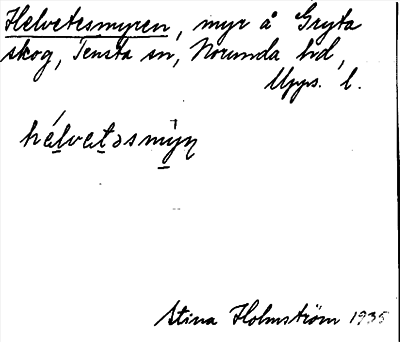 Helvetesmyren, myr å Gryta
skog, Tensta sn, Norunda hd,
Upps. l.
hélvetəsmỳn
Stina Holmström 1935